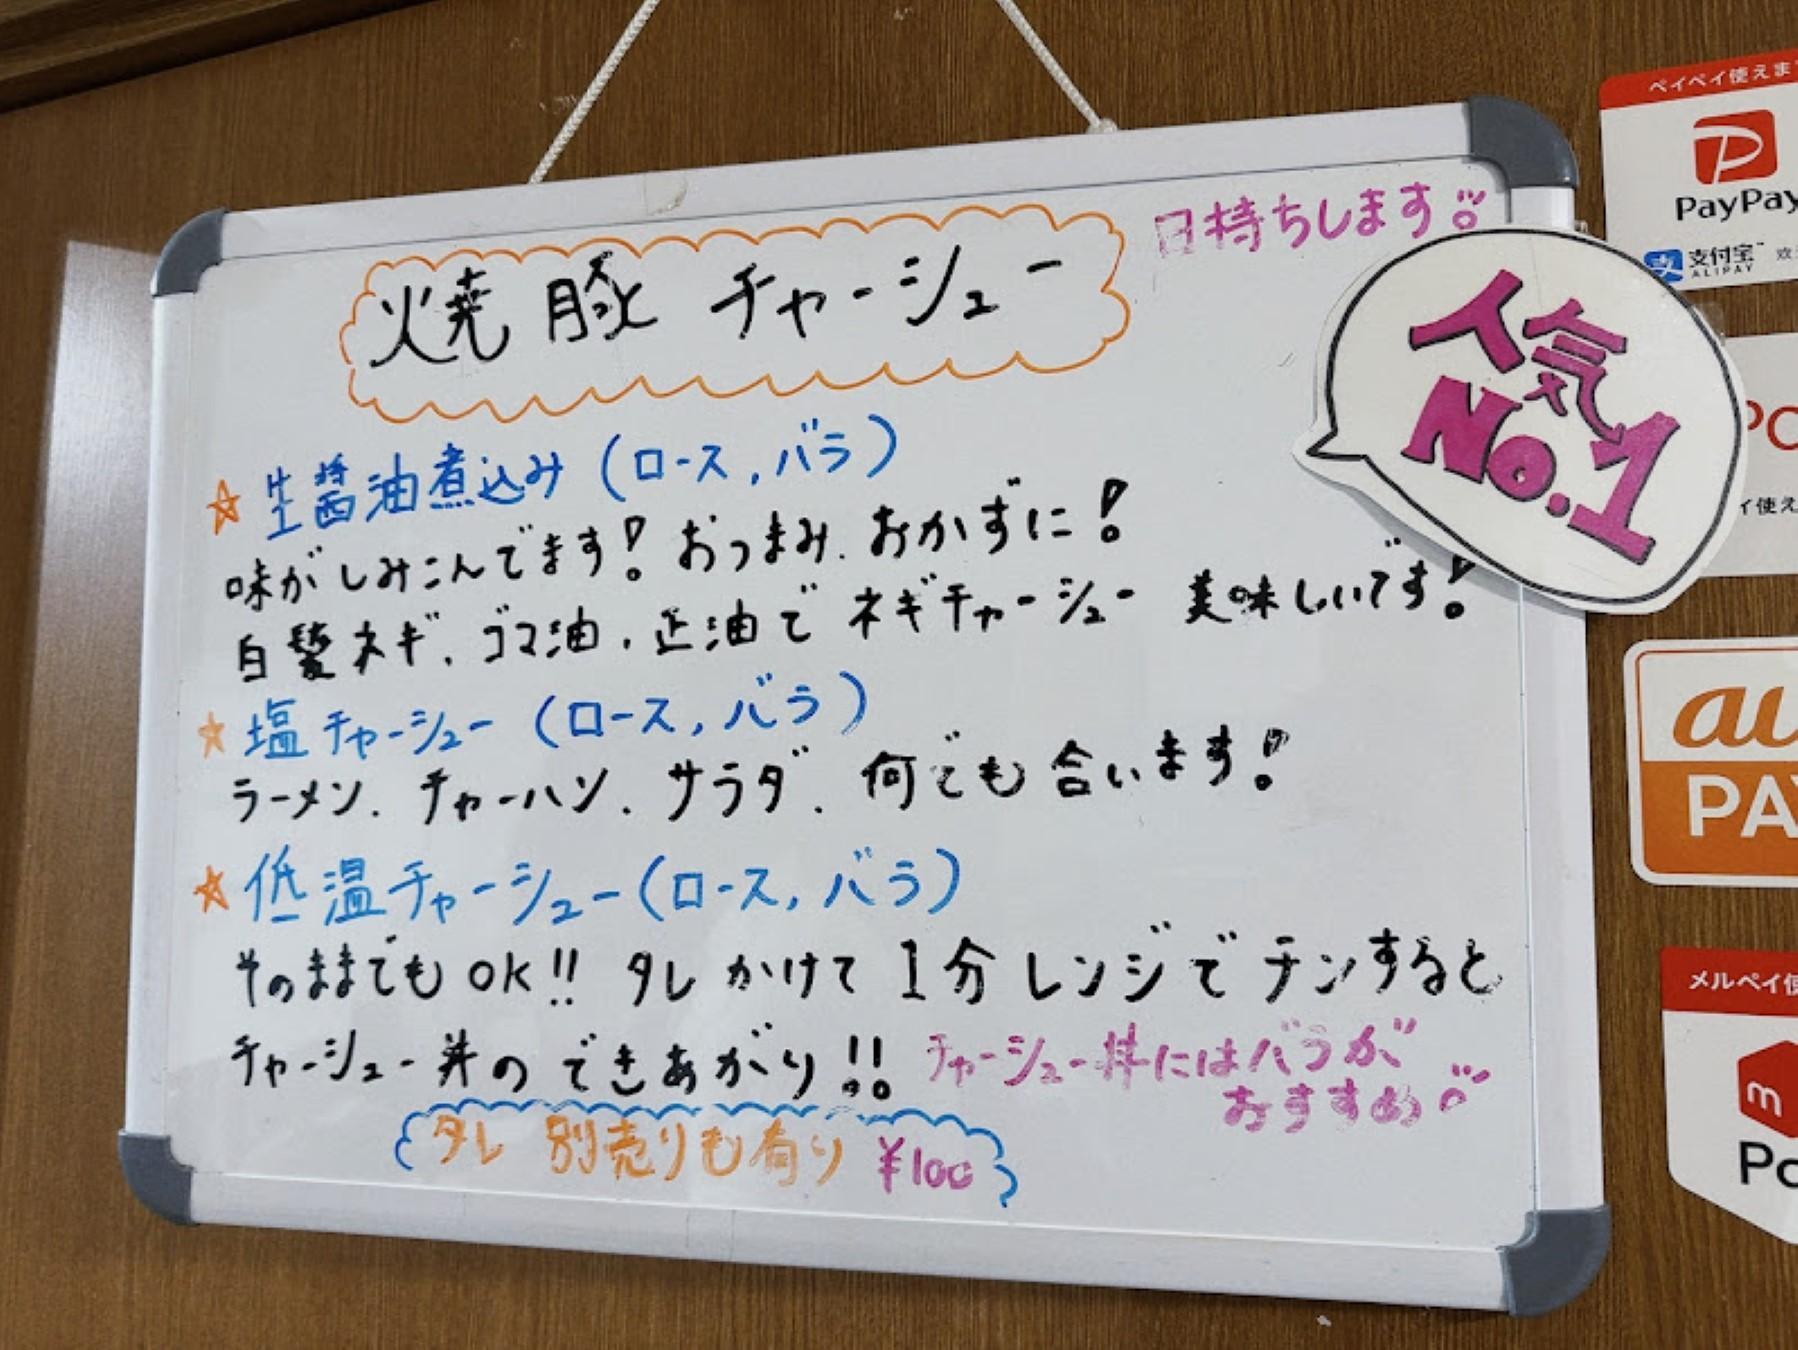 日持ちします。
焼豚 チャーシュー
人気
No.1
☆生醤油煮込み(ロース,バラ)
味がしみこんでます!おつまみ、おかずに!
白髪ネギ、ゴマ油、正油でネギチャーシュー 美味しいです!
☆塩チャーシュー(ロース,バラ)
ラーメン、チャーハン、サラダ、何でも合います!
☆低温チャーシュー(ロース,バラ)
そのままでもOK!! タレかけて1分レンジでチンすると
チャーシュー丼のできあがり!!
チャーシュー丼にはバラが
おすすめ。
タレ 別売りも有り ¥100
ペイペイ使えま
PayPay
支付宝
ALIPAY
イ使え
au
PAY
メルペイ使